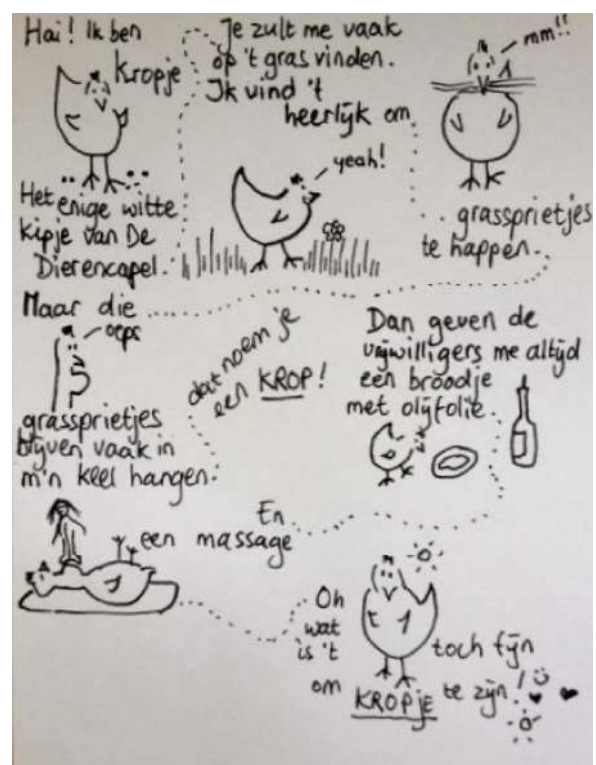 Hai! Ik ben
Kropje
Het enige witte
kipje van De
Dierencapel.
Je zult me vaak
op 't gras vinden.
Ik vind 't
heerlijk om
yeah!
mm!!
grassprietjes
te happen.
Maar die
oeps
grassprietjes
blijven vaak in
m'n keel hangen.
dat noem je
een KROP!
Dan geven de
vrijwilligers me altijd
een broodje
met olijfolie.
En
een massage
Oh
wat
is 't
toch fijn
om KROPje te zijn!